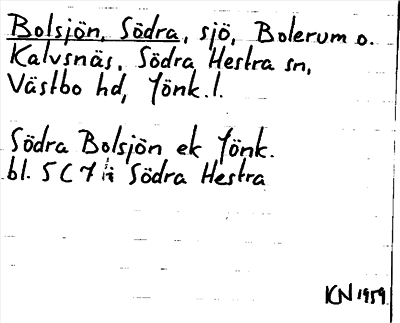 Bolsjön, Södra, sjö, Bolerum o.
Kalvsnäs, Södra Hestra sn,
Västbo hd, Jönk. l.
Södra Bolsjön ek Jönk.
bl. 5 C 7 i Södra Hestra
KN 1959